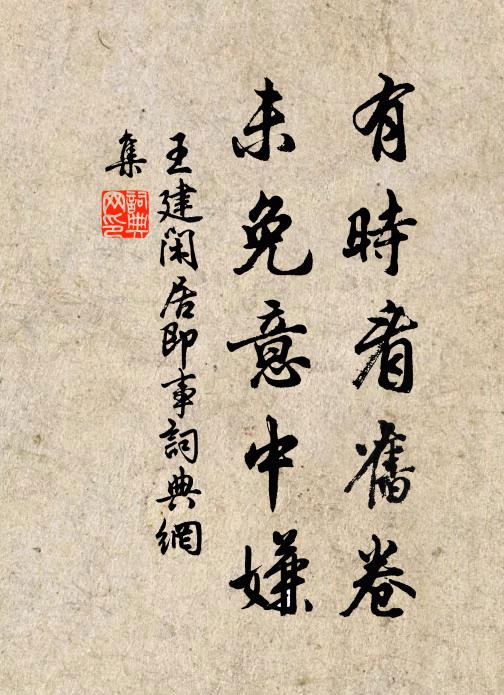 有時看舊卷
未免意中嫌
王建閑居即事詞典網
集
詞典
网印